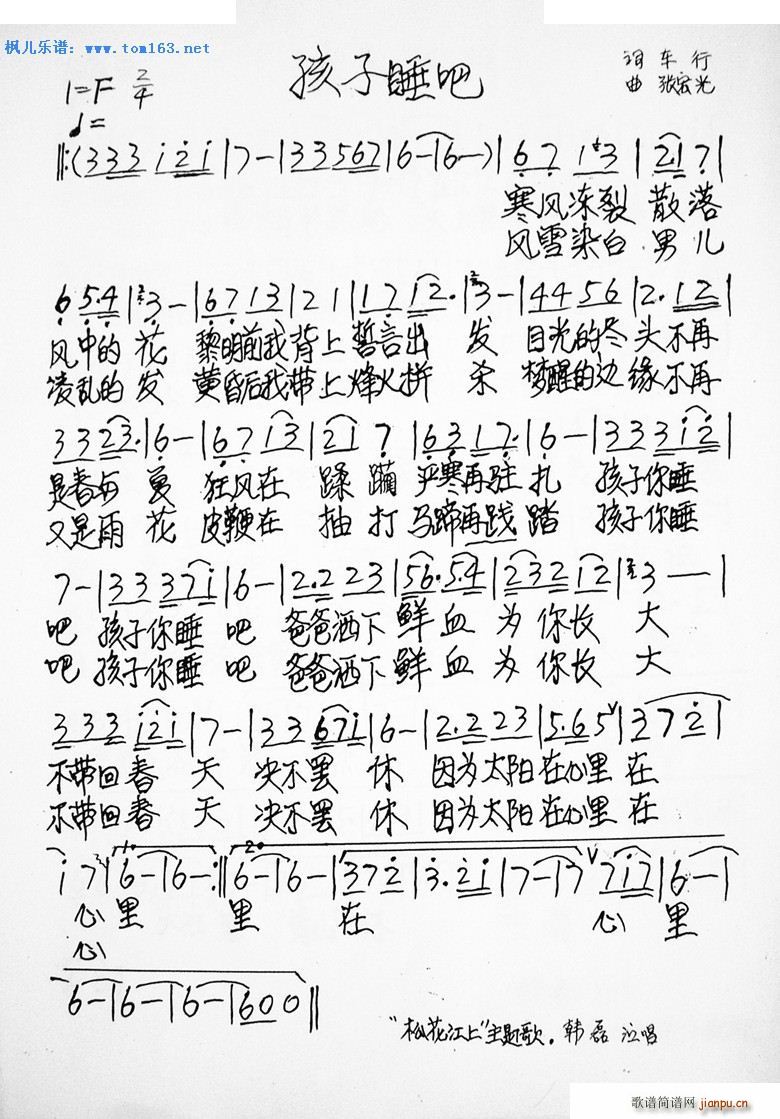 枫儿乐谱：www.tom163.net
孩子睡吧
词 车行
曲 张宏光
1=F 2/4
♩=
‖:(333 i2i|7-|33567|6-|6-)|67 1 3|2·1 7|
寒风冻裂 散落
风雪染白 男儿
6 5·4|3-|67 13|2 1|17 12·|3-|44 56|2·12|
风中的 花 黎明前我 背上 誓言出 发 目光的尽头不再
凌乱的 发 黄昏后我 带上 烽火拼 杀 梦醒的边缘不再
33 23·|6-|67 i3|2i 7|63 17·|6-|333 i2|
是春与 夏 狂风在 蹂躏 严寒再驻 扎 孩子你睡
又是雨 花 皮鞭在 抽打 马蹄再践 踏 孩子你睡
7-|33 37i|6-|2·2 23|56·5·4|232 12|3--|
吧 孩子你睡 吧 爸爸洒下 鲜血 为你长 大
吧 孩子你睡 吧 爸爸洒下 鲜血 为你长 大
333 i2i|7-|33 67i|6-|2·2 23|5·6 5∨|37 2|
不带回春 天 决不罢 休 因为太阳在心里 在
不带回春 天 决不罢 休 因为太阳在心里 在
i 7|1.6-|6-:‖2.6-|6-|372|3·2i|7-|7∨7i7|6-|
心里 里 在 心里
心
6-|6-|6-|600‖
"松花江上"主题歌. 韩磊 演唱
歌谱简谱网
jianpu.cn